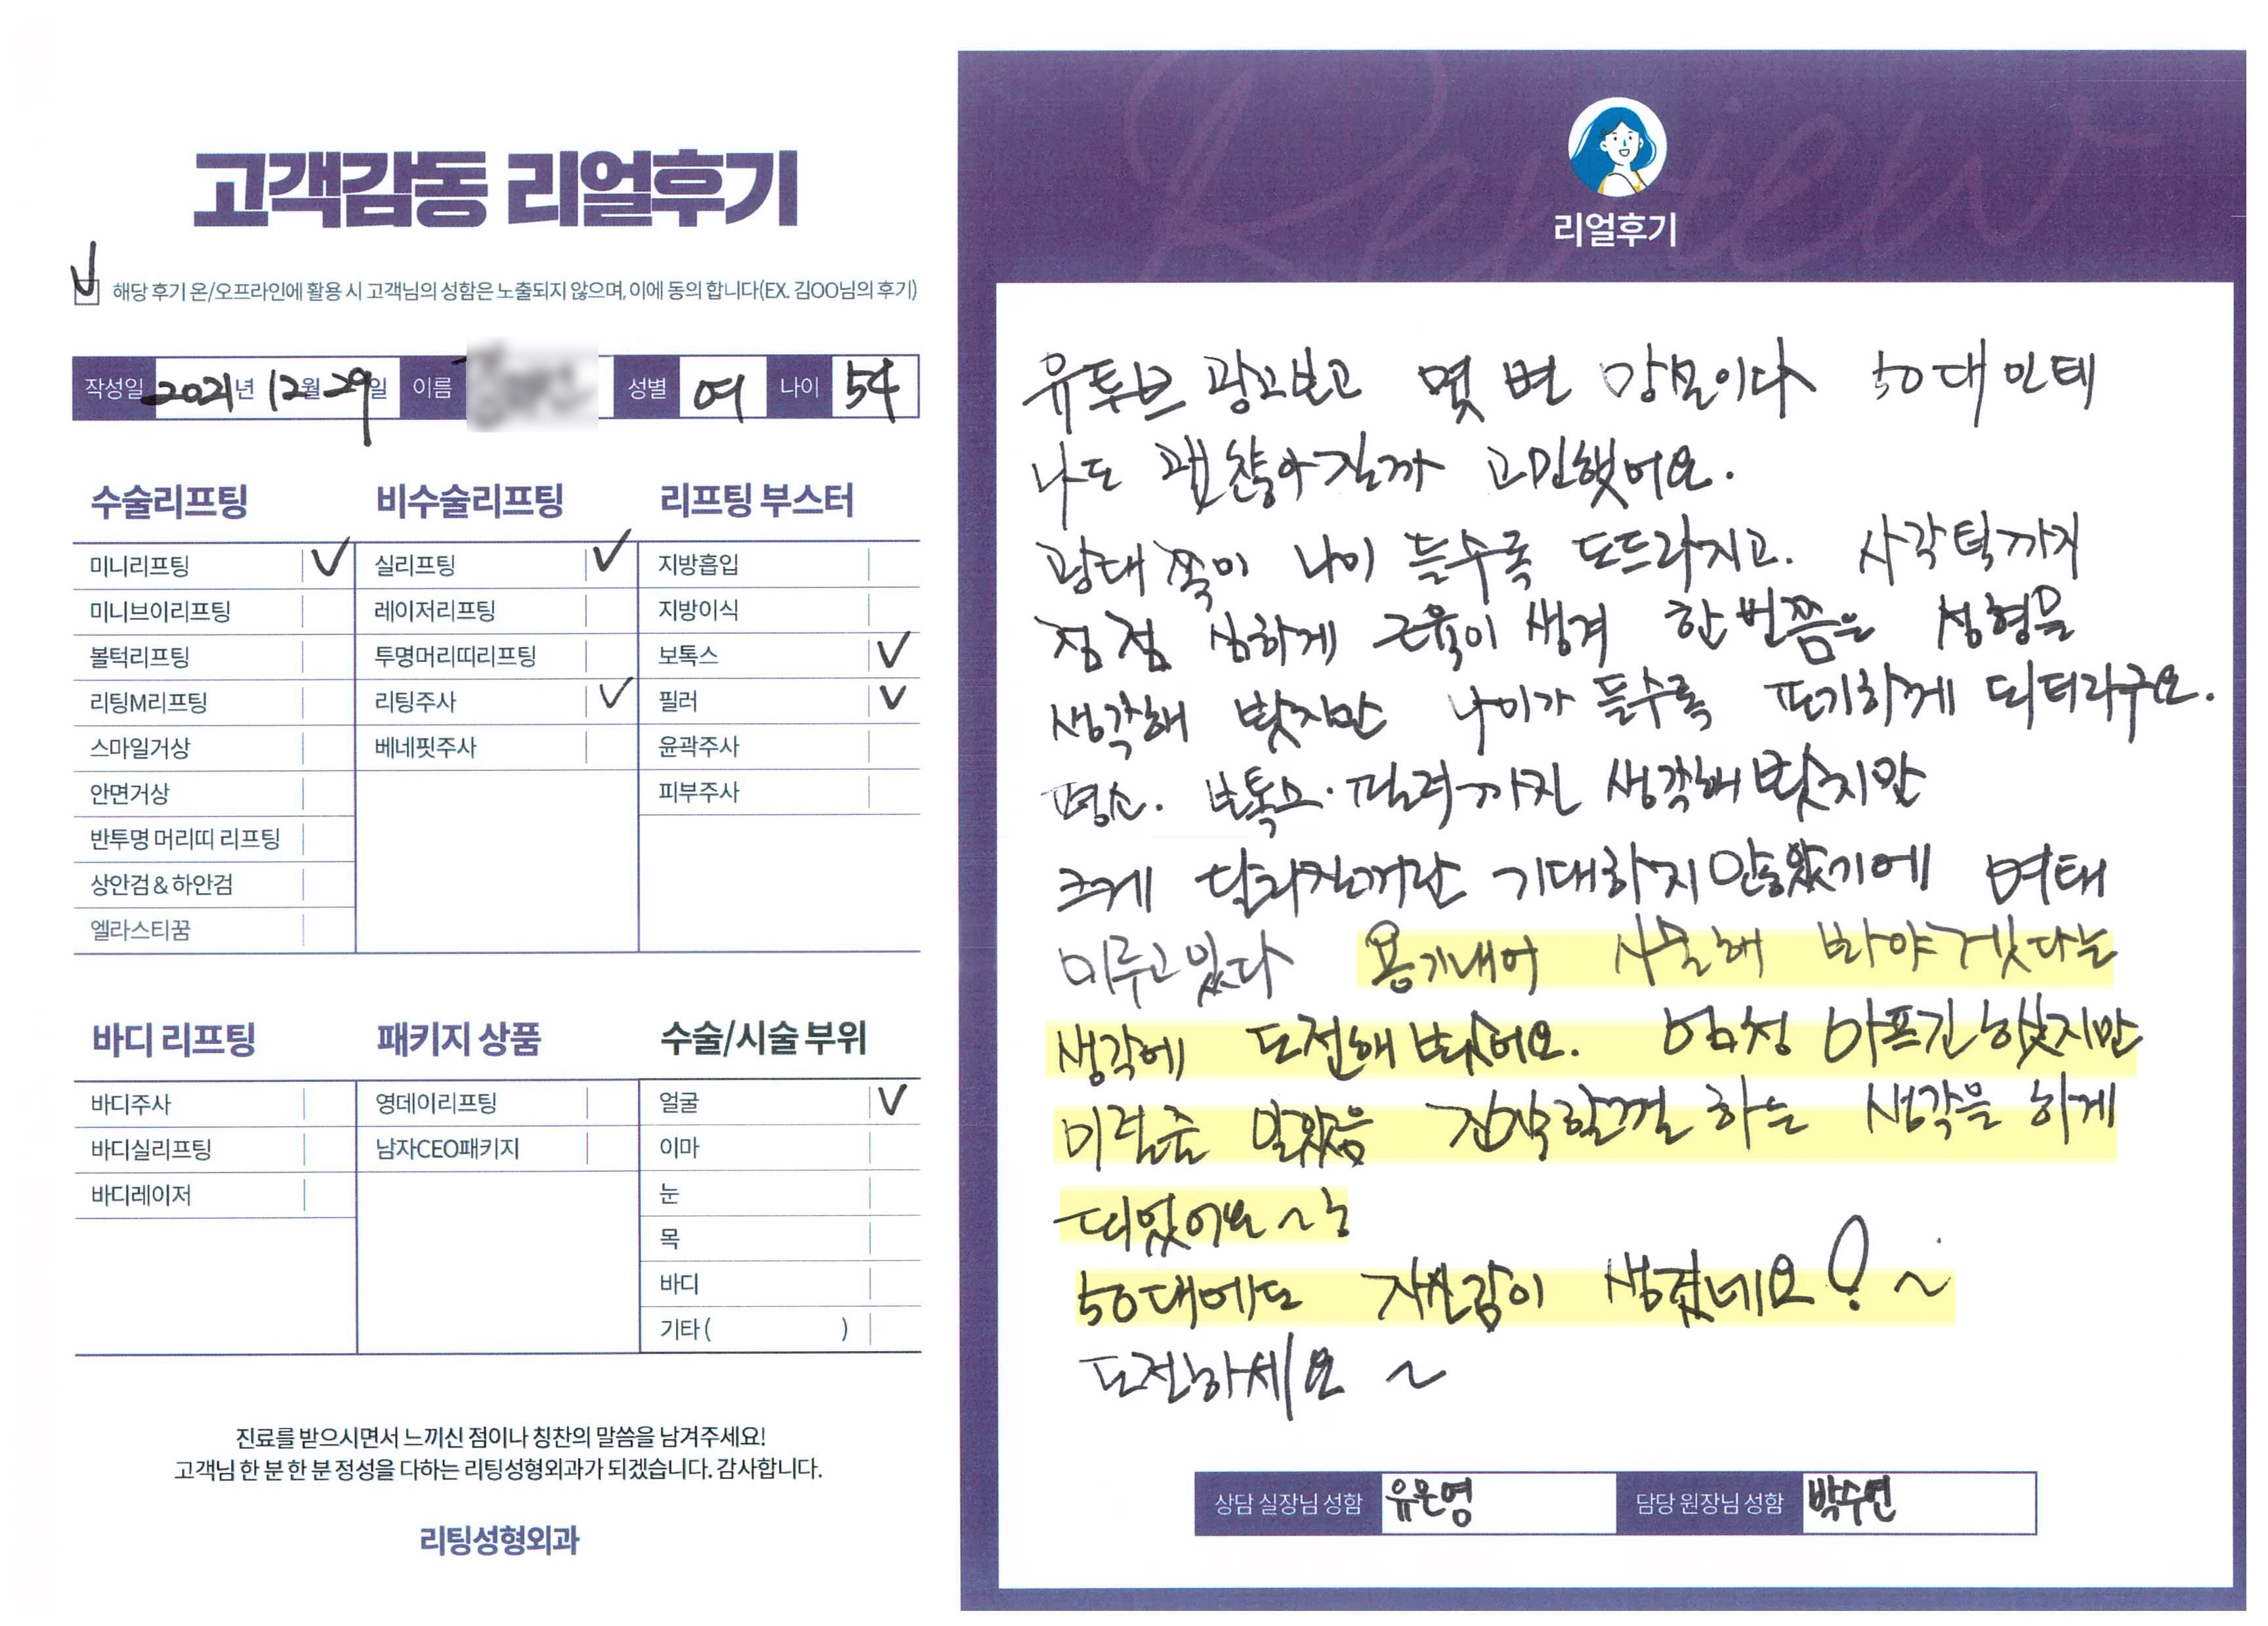 고객감동 리얼후기
해당 후기 온/오프라인에 활용 시 고객님의 성함은 노출되지 않으며, 이에 동의 합니다(EX. 김OO님의 후기)
작성일 2021년 12월 29일 이름 성별 여 나이 54
수술리프팅
미니리프팅 ✓
미니브이리프팅
볼턱리프팅
리팅M리프팅
스마일거상
안면거상
반투명 머리띠 리프팅
상안검 & 하안검
엘라스티꿈
비수술리프팅
실리프팅 ✓
레이저리프팅
투명머리띠리프팅
리팅주사 ✓
베네핏주사
리프팅 부스터
지방흡입
지방이식
보톡스 ✓
필러 ✓
윤곽주사
피부주사
바디 리프팅
바디주사
바디실리프팅
바디레이저
패키지 상품
영데이리프팅
남자CEO패키지
수술/시술 부위
얼굴 ✓
이마
눈
목
바디
기타 ( )
진료를 받으시면서 느끼신 점이나 칭찬의 말씀을 남겨주세요!
고객님 한 분 한 분 정성을 다하는 리팅성형외과가 되겠습니다. 감사합니다.
리팅성형외과
Review
리얼후기
유투브 광고보고 몇 번 망설이다 50대인데
나도 괜찮아질까 고민했어요.
광대쪽이 나이 들수록 도드라지고. 사각턱까지
점점 심하게 근육이 생겨 한번쯤은 성형을
생각해 봤지만 나이가 들수록 포기하게 되더라구요.
평소. 보톡스. 필러까진 생각해봤지만
크게 달라질꺼란 기대하지 안핬기에 여태
미루고있다 용기내어 시술해 봐야겠다는
생각에 도전해 봤어요. 엄청 아프긴 했지만
이런줄 알았음 진작할껄 하는 생각을 하게
되었어요~
50대에도 자신감이 생겼네요! ~
도전하세요 ~
상담 실장님 성함 유은영 담당 원장님 성함 박수연